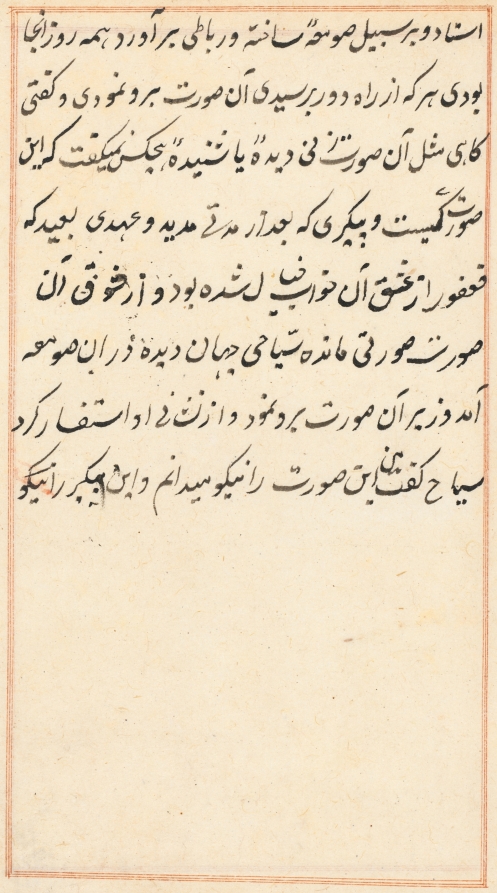 استاد و بر سبیل صومعهٔ ساخته و رباطی برآورد همه روز آنجا
بودی هر که از راه دور برسیدی آن صورت برو نمودی و کفتی
کاهی مثل آن صورت زنی دیدهٔ یا شنیدهٔ هیچکس نمیکفت که این
صورت کیست و پیکری که بعد از مدتی مدید و عهدی بعید که
فغفور از عشق آن خواب خیال شده بود و از شوق آن
صورت صورتی مانده سیاحی جهان دیده در آن صومعه
آمد وزیر آن صورت برو نمود و از نشانی او استفسار کرد
سیاح کفت من این صورت را نیکو میدانم و این پیکر را نیکو